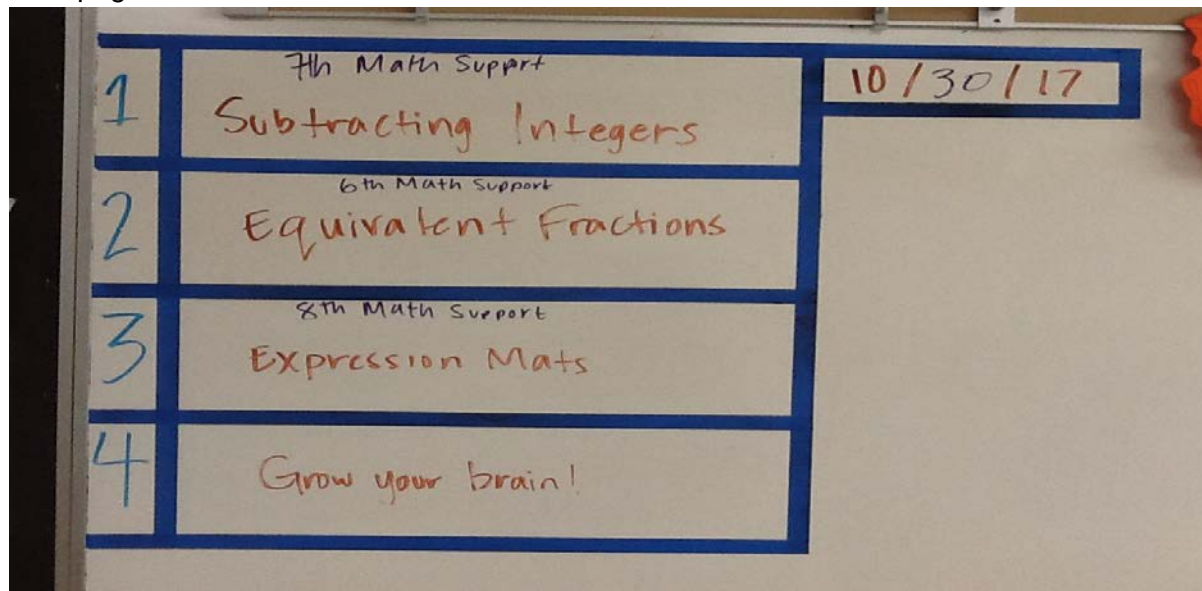 7th Math Support
1 Subtracting Integers
10/30/17
6th Math Support
2 Equivalent Fractions
8th Math Support
3 Expression Mats
4 Grow your brain!